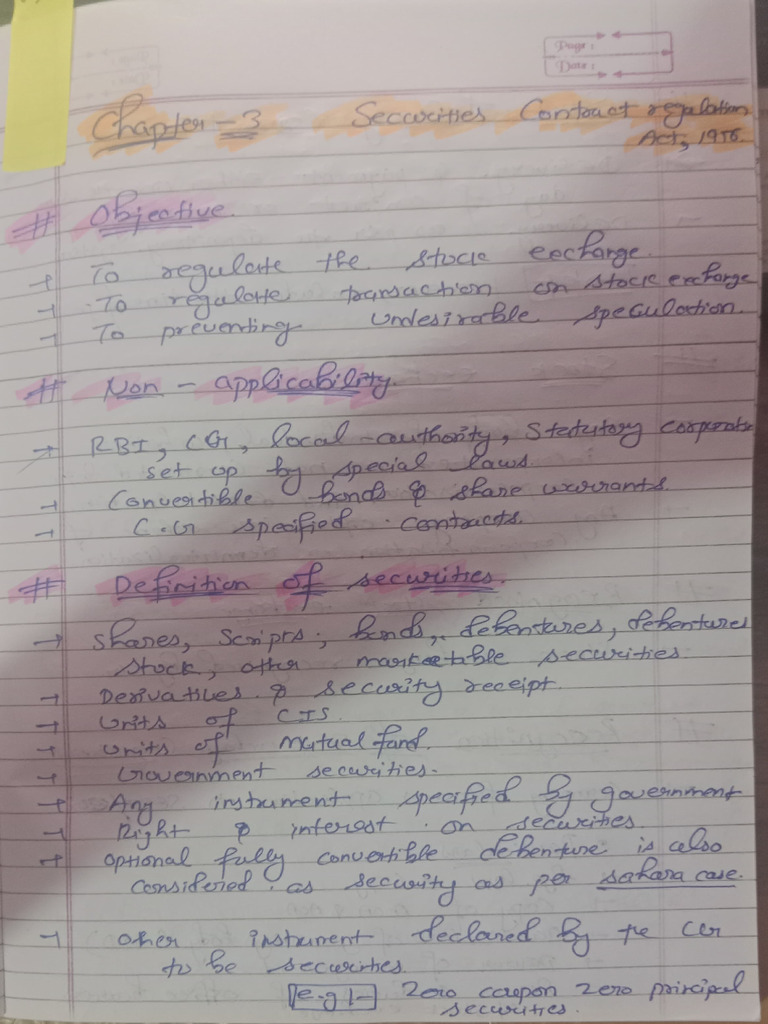 Page :
Date :
Chapter - 3 Seccurities Contract regulation
Act, 1956.
# Objective.
→ To regulate the stock exchange.
→ To regulate transaction on stock exchange
→ To preventing undesirable speculation.
# Non - applicability.
→ RBI, CG, local-authority, Statutory corporate
set up by special laws.
→ Convertible bonds & share warrants.
→ C.G specified contracts.
# Definition of securities.
→ shares, scripts, bonds, debentures, debentures
stock, other marketable securities.
→ Derivatives & security receipt.
→ Units of CIS.
→ Units of mutual fund.
→ Government securities.
→ Any instrument specified by government
→ Right & interest on securities.
→ optional fully convertible debenture is also
considered as security as per sahara case.
→ other instrument declared by the CG
to be securities.
e.g :- Zero coupon zero principal
securities.